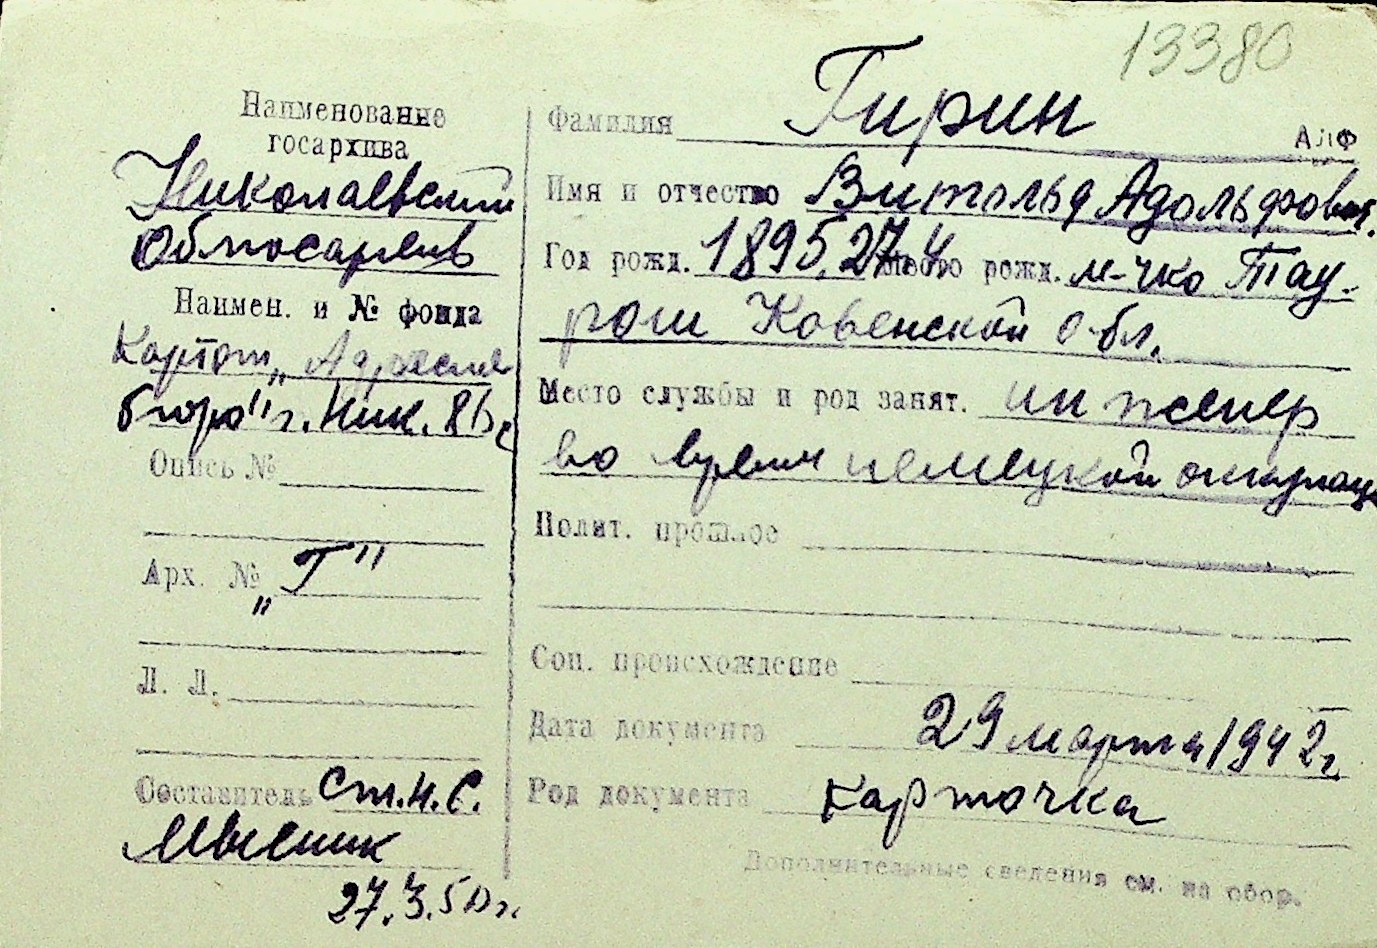 13380
Наименование
госархива
Николаевский
Облгосархив
Наимен. и № фонда
Картот. „Адресное
бюро" г. Ник.
Опись №
Арх. № „Г"
Л. Л.
Составитель ст. н. с.
27.3.50 г.
Фамилия Гирин АЛФ
Имя и отчество Витольд Адольфович
Год рожд. 1895, 27.4. Место рожд. м-чко Тау-
рош Ковенской обл.
Место службы и род занят. инженер
во время немецкой оккупац
Полит. прошлое
Соц. происхождение
Дата документа 29 марта 1942 г.
Род документа карточка
Дополнительные сведения см. на обор.